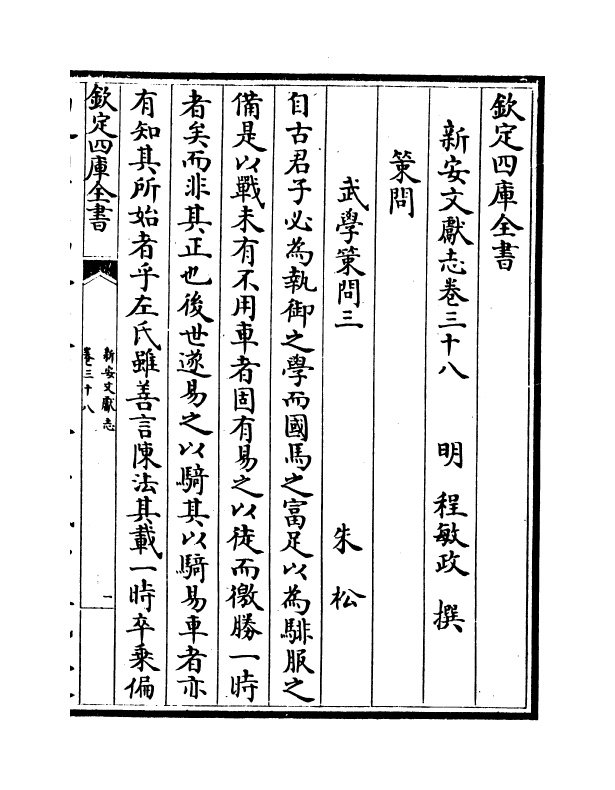 欽定四庫全書
新安文獻志卷三十八 明 程敏政 撰
策問
武學策問三 朱松
自古君子必為執御之學而國馬之富足以為騑服之
備是以戰未有不用車者固有易之以徒而徼勝一時
者矣而非其正也後世遂易之以騎其以騎易車者亦
有知其所始者乎左氏雖善言陳法其載一時卒乗偏
欽定四庫全書
新安文獻志
卷三十八
一